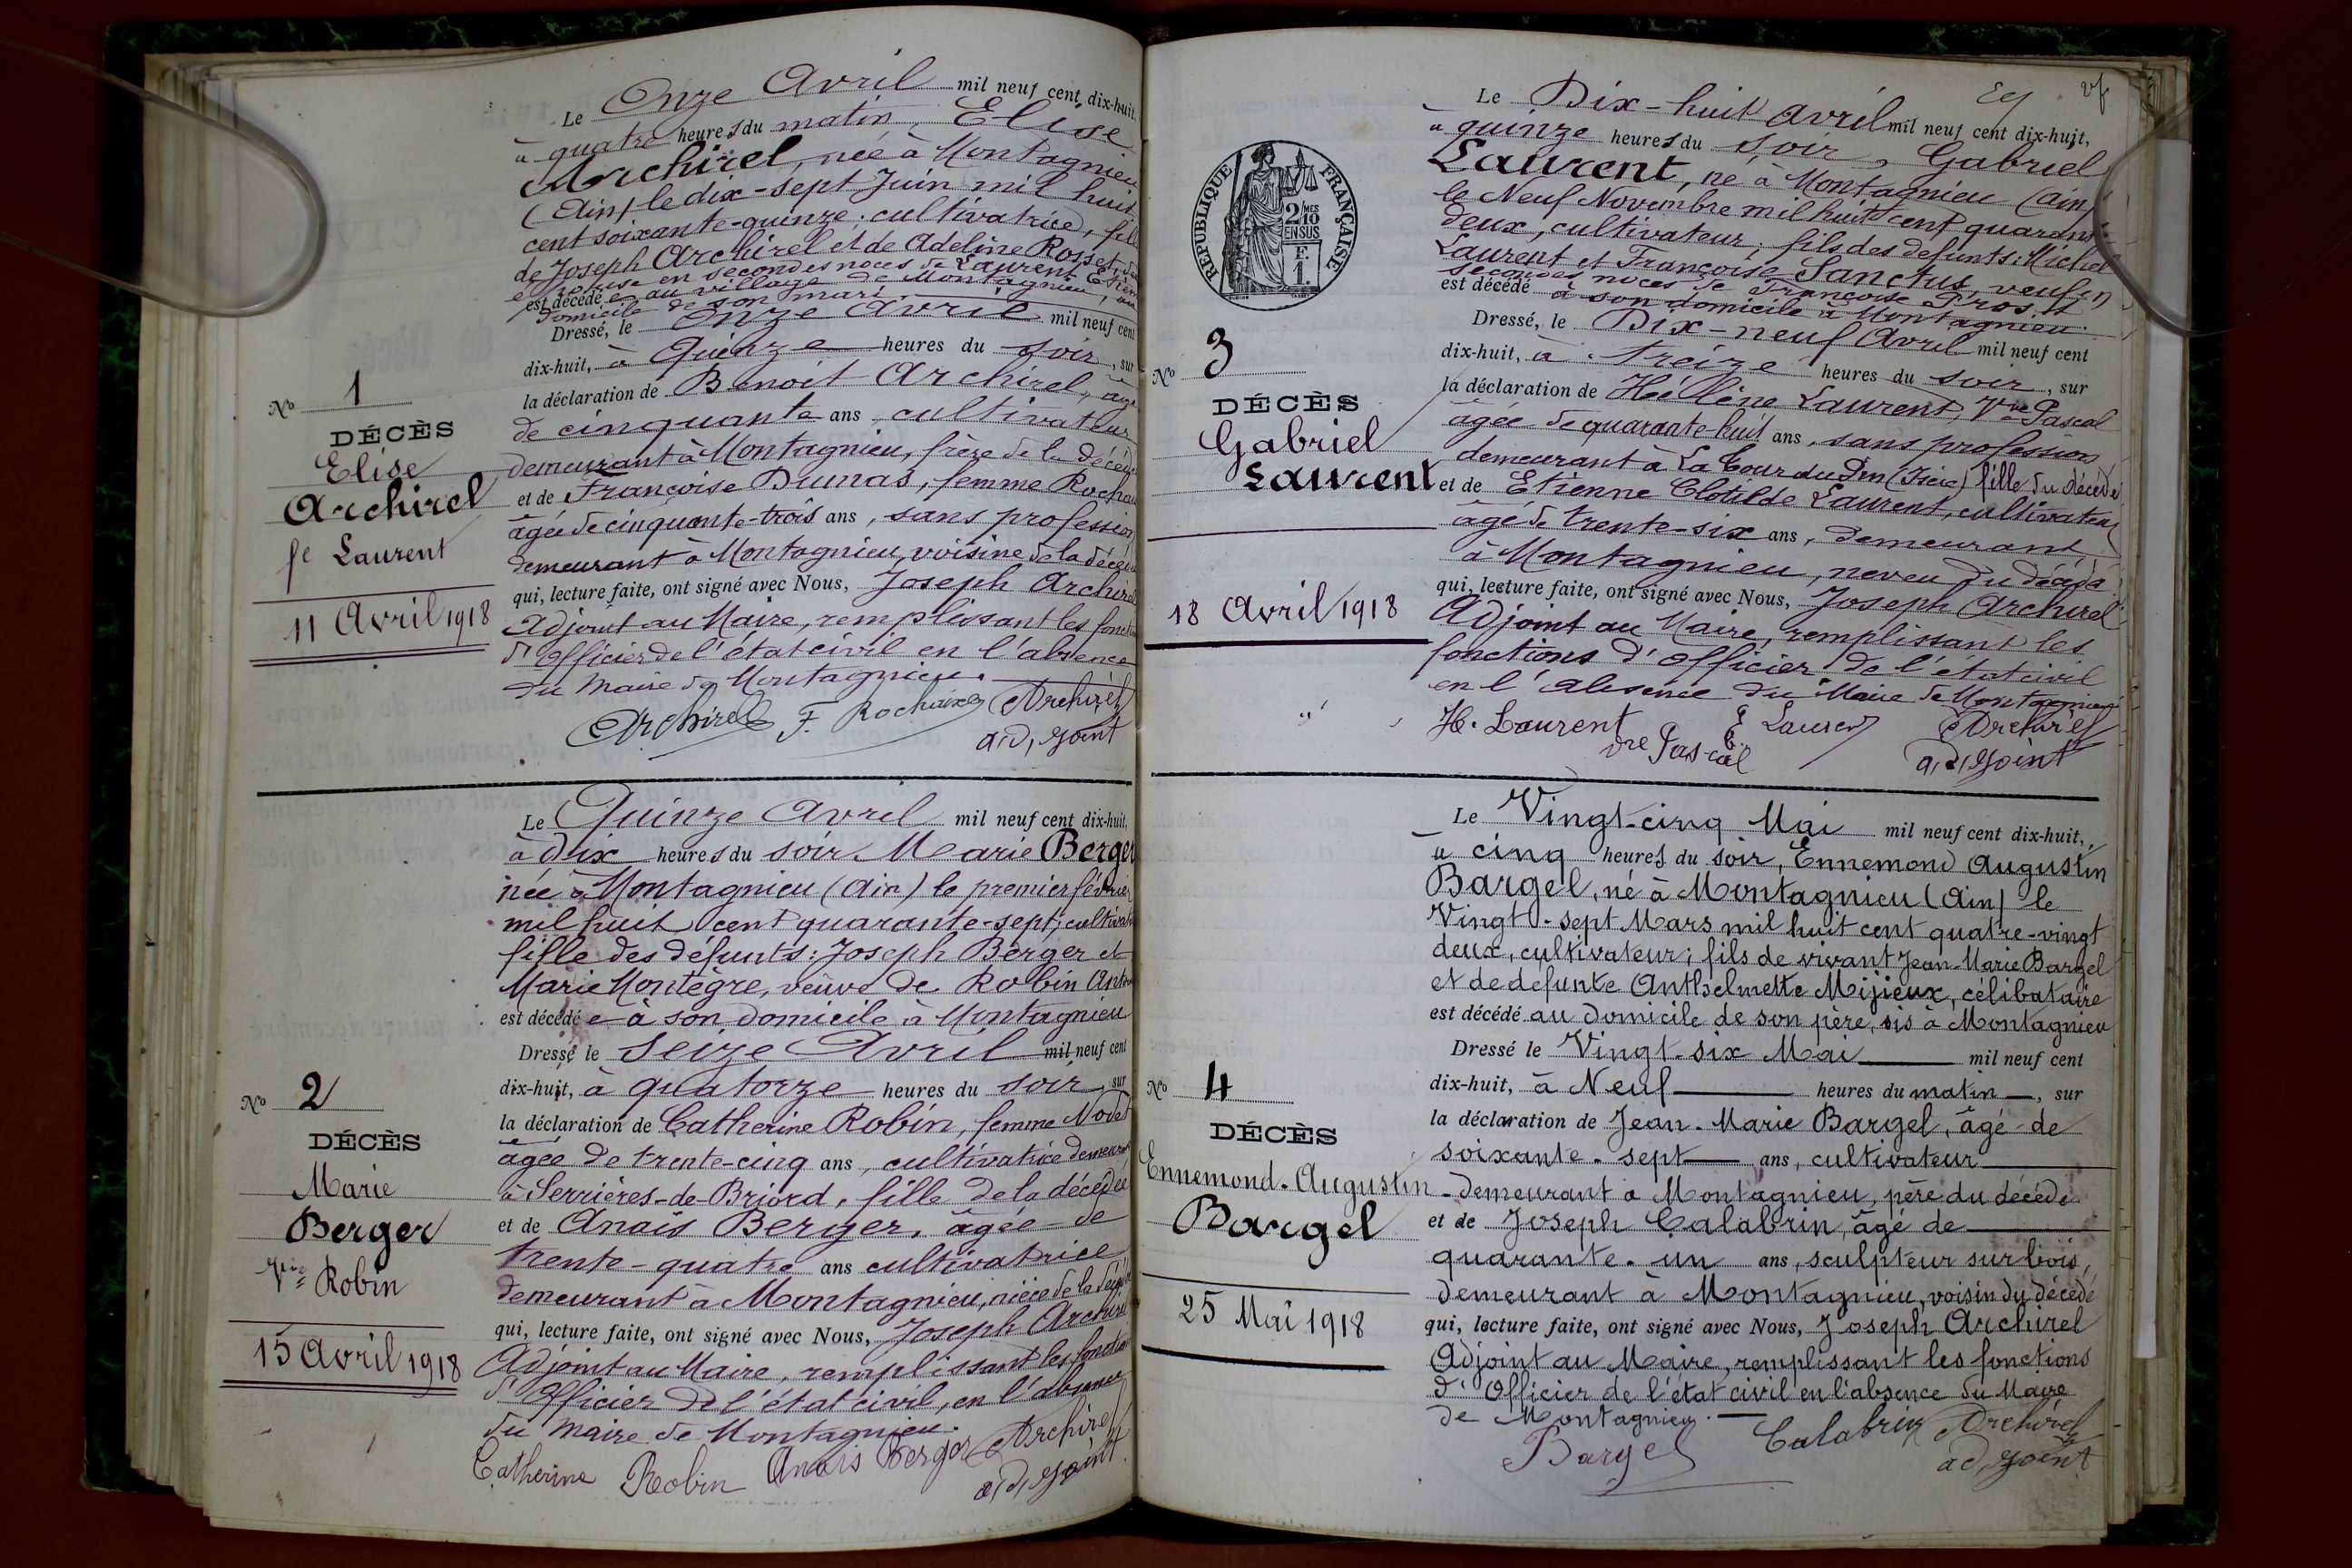 Le Onze Avril mil neuf cent dix-huit,
à quatre heures du matin, Elise
Archirel, née à Montagnieu
(Ain) le dix-sept Juin mil huit
cent soixante-quinze; cultivatrice, fille
de Joseph Archirel et de Adeline Rosset,
épouse en secondes noces de Laurent
est décédée au village de Montagnieu, au
domicile de son mari
Dressé, le Onze Avril mil neuf cent
dix-huit, à Quinze heures du soir, sur
la déclaration de Benoit Archirel, âgé
de cinquante ans, cultivateur
demeurant à Montagnieu, frère de la
et de Françoise Dumas, femme
âgée de cinquante-trois ans, sans profession
demeurant à Montagnieu, voisine de la
qui, lecture faite, ont signé avec Nous, Joseph Archirel
Adjoint au Maire, remplissant les
d'Officier de l'état civil en l'absence
du Maire de Montagnieu.
Archirel F. Rochaix Archirel
adjoint
No 1
DÉCÈS
Elise
Archirel
fe Laurent
11 Avril 1918
Le Quinze Avril mil neuf cent dix-huit,
à dix heures du soir Marie Berger
née à Montagnieu (Ain) le premier février
mil huit cent quarante-sept; cultivatrice
fille des défunts: Joseph Berger et
Marie Montègre, veuve de Robin
est décédée à son domicile à Montagnieu
Dressé le Seize Avril mil neuf cent
dix-huit, à quatorze heures du soir, sur
la déclaration de Catherine Robin, femme Nodet
âgée de trente-cinq ans, cultivatrice
à Serrières-de-Briord, fille de la décédée
et de Anaïs Berger, âgée de
trente-quatre ans cultivatrice
demeurant à Montagnieu, nièce de la
qui, lecture faite, ont signé avec Nous, Joseph Archirel
Adjoint au Maire, remplissant les
d'Officier de l'état civil, en l'absence
du Maire de Montagnieu.
Catherine Robin Anaïs Berger Archirel
adjoint
No 2
DÉCÈS
Marie
Berger
Vve Robin
15 Avril 1918
RÉPUBLIQUE FRANÇAISE
2/10 MES
EN SUS
F.
1.
Le Dix-huit Avril mil neuf cent dix-huit,
à quinze heures du soir, Gabriel
Laurent, né à Montagnieu (Ain)
le Neuf Novembre mil huit cent quarante
deux, cultivateur; fils des défunts: Michel
Laurent et Françoise Sanctus, veuf en
secondes noces de Françoise Prost
est décédé à son domicile à Montagnieu.
Dressé, le Dix-neuf Avril mil neuf cent
dix-huit, à treize heures du soir, sur
la déclaration de Hélène Laurent, Vve Pascal
âgée de quarante-huit ans, sans profession
demeurant à La Tour du Pin (Isère) fille du décédé
et de Etienne Clotilde Laurent, cultivateur
âgé de trente-six ans, demeurant
à Montagnieu, neveu du décédé
qui, lecture faite, ont signé avec Nous, Joseph Archirel
Adjoint au Maire, remplissant les
fonctions d'Officier de l'état civil
en l'absence du Maire de Montagnieu
H. Laurent E Laurent Archirel
vve Pascal adjoint
No 3
DÉCÈS
Gabriel
Laurent
18 Avril 1918
Le Vingt-cinq Mai mil neuf cent dix-huit,
à cinq heures du soir, Ennemond Augustin
Bargel, né à Montagnieu (Ain) le
Vingt-sept Mars mil huit cent quatre-vingt
deux, cultivateur; fils de vivant Jean-Marie Bargel
et de defunte Anthelmette Mijieux, célibataire
est décédé au domicile de son père, sis à Montagnieu
Dressé le Vingt-six Mai mil neuf cent
dix-huit, à Neuf heures du matin, sur
la déclaration de Jean-Marie Bargel, âgé de
soixante-sept ans, cultivateur
demeurant à Montagnieu, père du décédé
et de Joseph Calabrin, âgé de
quarante-un ans, sculpteur sur bois,
demeurant à Montagnieu, voisin du décédé
qui, lecture faite, ont signé avec Nous, Joseph Archirel
Adjoint au Maire, remplissant les fonctions
d'Officier de l'état civil en l'absence du Maire
de Montagnieu.
Bargel Calabrin Archirel
adjoint
No 4
DÉCÈS
Ennemond-Augustin
Bargel
25 Mai 1918